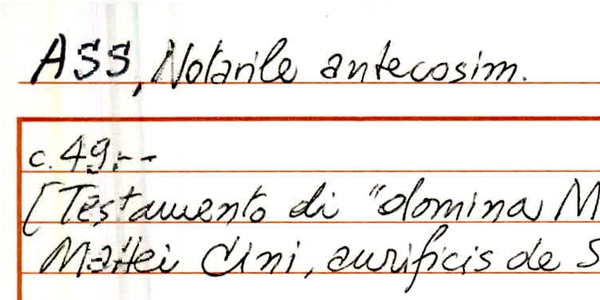 ASS, Notarile antecosim.
c. 49r--
[Testamento di "domina M
Mattei Cini, aurificis de S